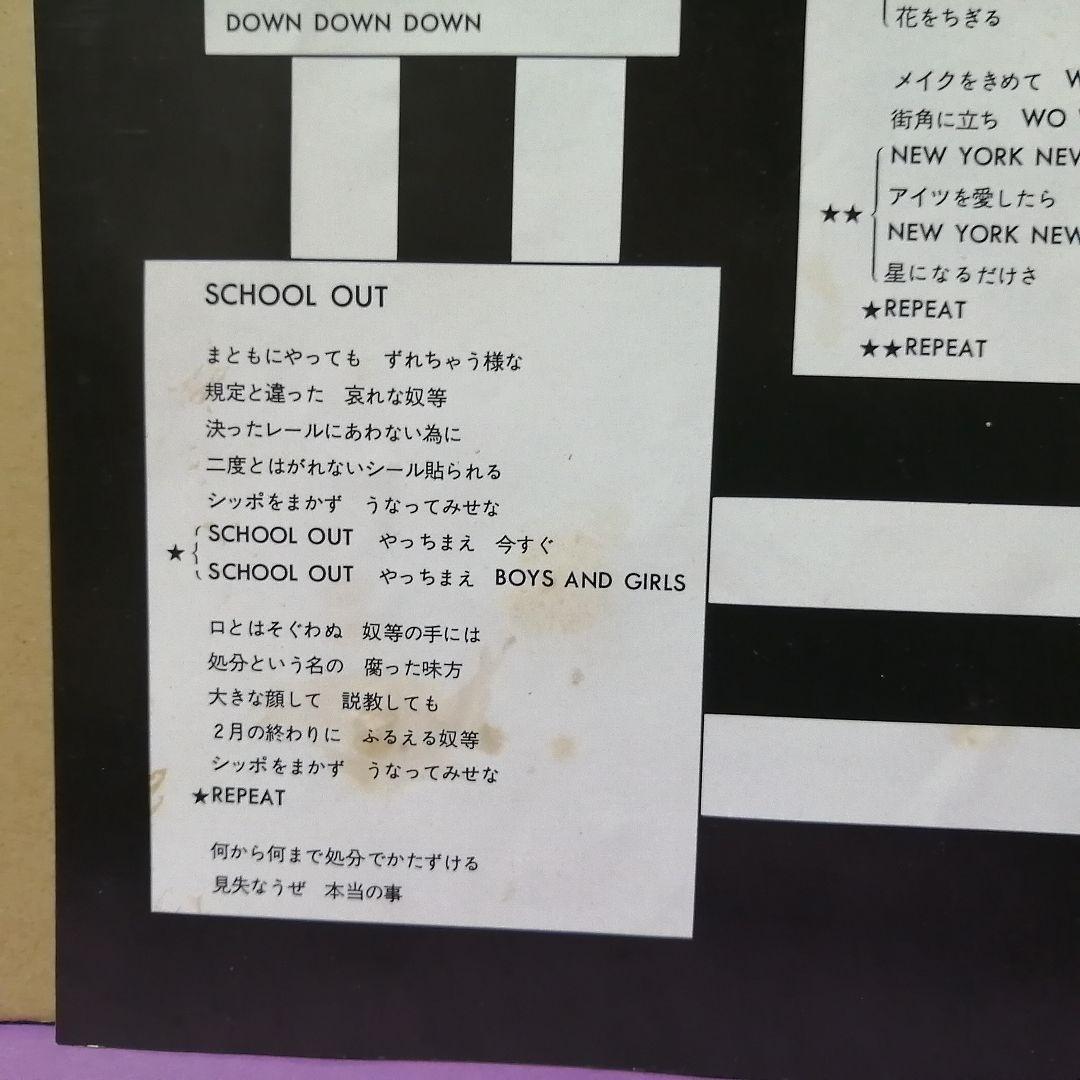 DOWN DOWN DOWN
SCHOOL OUT
まともにやっても　ずれちゃう様な
規定と違った　哀れな奴等
決ったレールにあわない為に
二度とはがれないシール貼られる
シッポをまかず　うなってみせな
SCHOOL OUT　やっちまえ　今すぐ
★
SCHOOL OUT　やっちまえ　BOYS AND GIRLS
口とはそぐわぬ　奴等の手には
処分という名の　腐った味方
大きな顔して　説教しても
２月の終わりに　ふるえる奴等
シッポをまかず　うなってみせな
★REPEAT
何から何まで処分でかたずける
見失なうぜ　本当の事
花をちぎる
メイクをきめて
街角に立ち　WO
NEW YORK NEW
アイツを愛したら
★★
NEW YORK NEW
星になるだけさ
★REPEAT
★★REPEAT